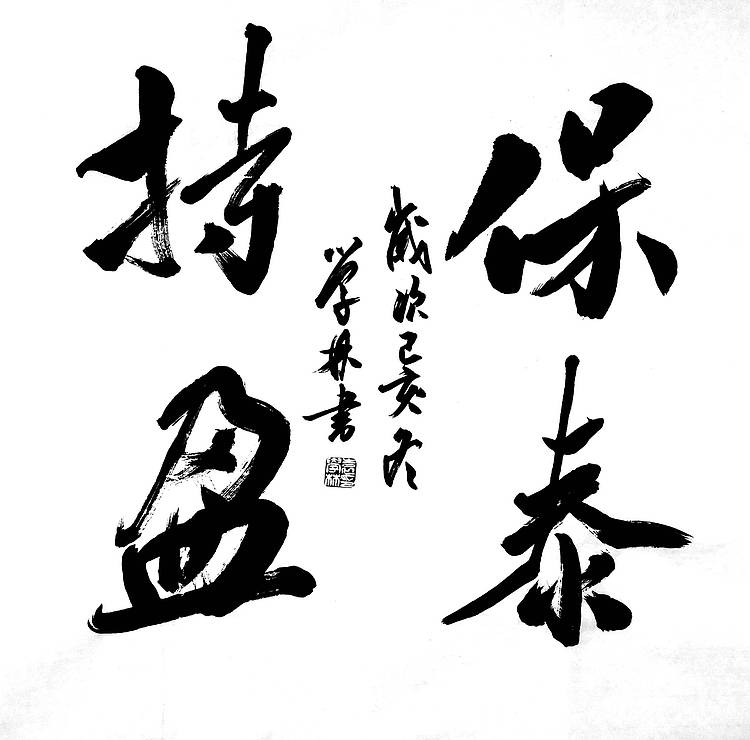 保泰
持盈
歲次己亥冬
学林書